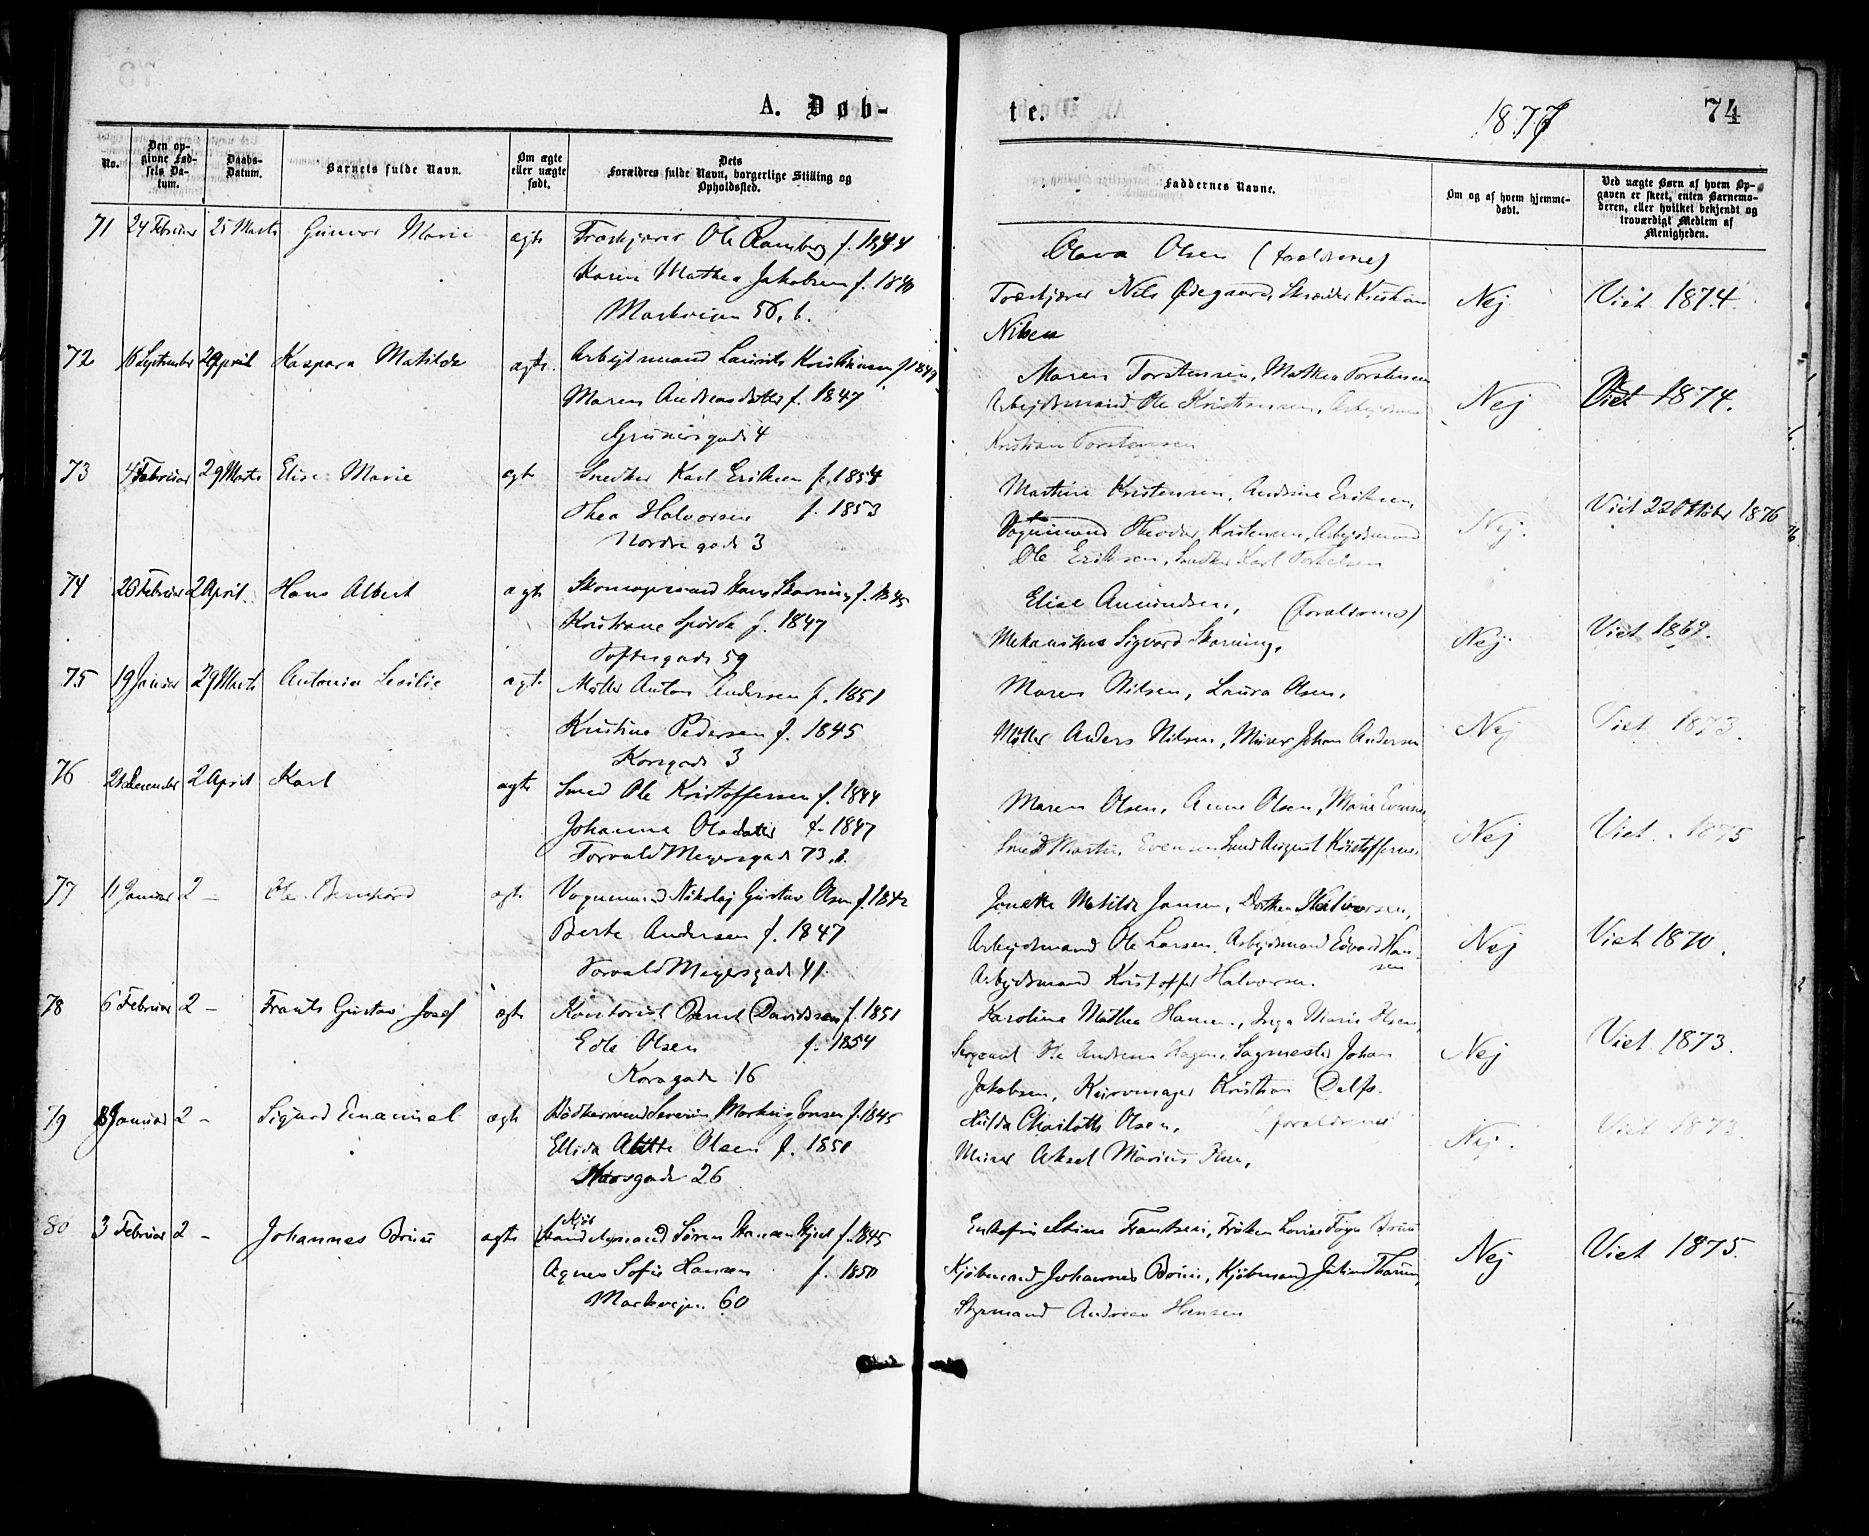 A. Døb-
te.
1877
74
No.
Den op-
givne Fød-
sels Da-
tum.
Daabs-
Datum.
Barnets fulde Navn.
Om ægte
eller uægte
født.
Dets
Forældres fulde Navn, borgerlige Stilling og
Opholdssted.
Faddernes Navne.
Om og af hvem hjemme-
døbt.
Ved uægte Børn af hvem Op-
gaven er skeet, enten Barnemo-
deren, eller hvilket bekjendt og
troværdigt Medlem af
Menigheden.
71 24 Februar 25 Marts Gunvor Marie ægte Træskjærer Ole Ramberg f. 1844
Karen Mathea Jakobsen f. 1840
Markveien 56, b.
Olava Olsen (forældrene)
Træskjærer Nils Ødegaard, Skrædder Kristian
Nilsen
Nej Viet 1874.
72 16 September 2 April Kaspara Matilde ægte. Arbejdsmand Laurits Kristiansen f. 1849
Maren Andreasdatter f. 1847
Grünersgade 4
Maren Torstensen, Mathea Torstensen
Arbejdsmand Ole Kristiansen, Arbejdsmand
Kristian Torstensen
Nej Viet 1874.
73 4 Februar 29 Marts Elise Marie ægte Snedker Karl Eriksen f. 1854
Thea Halvorsen f. 1853
Nordregade 3
Martine Kristensen, Andrine Eriksen,
Vognmand Theodor Kristensen, Arbejdsmand
Ole Eriksen, Snedker Karl Torkelsen
Nej. Viet 22 Oktober 1876
74 20 Februar 2 April. Hans Albert ægte Skomagersvend Hans Skarning f. 1845
Kristiane f. 1847
Toftesgade 59
Elise Amundsen, (forældrene)
Mekanikus Sigvard Skarning,
Nej Viet 1869.
75 19 Januar 29 Marts Antonia Cecilie ægte Møller Anton Andersen f. 1851
Kristine Pedersen f. 1845
Korsgade 3
Maren Nilsen, Laura Olsen,
Møller Anders Nilsen, Murer Johan Andersen
Nej Viet 1873.
76 21 December 2 April Karl ægte Smed Ole Kristoffersen f. 1844
Johanne Olsdatter f. 1847
Torvald Meyersgade 73, b.
Maren Olsen, Anne Olsen, Marie Evensen
Smed Martin Evensen Smed August Kristoffersen
Nej Viet 1875
77 11 Januar 2 — Ole Bernhard ægte. Vognmand Nikolaj Gustav Olsen f. 1842
Berte Andersen f. 1847
Torvald Meyersgade 41.
Jonette Matilde Jansen, Dorthea Halvorsen,
Arbejdsmand Ole Larsen, Arbejdsmand Edvard Han-
sen
Arbejdsmand Kristoffer Halvorsen.
Nej Viet 1870.
78 6 Februar 2 — Frants Gustav Josef ægte Kontorist Bernt Davidsen f. 1851
Edle Olsen f. 1854
Korsgade 16
Karoline Mathea Hansen, Inga Marie Olsen,
Sergeant Ole Andreas Hagen, Sagmester Johan
Jakobsen, Kurvmager Kristian Delfs.
Nej Viet 1873.
79 8 Januar 2 — Sigurd Emanuel ægte Bødkersvend Severin Martinius Jonsen f. 1845
Ellida Olsen f. 1850
Korsgade 26
Hulda Charlotte Olsen, (forældrene)
Murer Aksel Marius Olsen,
Nej. Viet 1873.
80 3 Februar 2 — Johannes Bruu ægte Handelsmand Søren Hansen f. 1845
Agnes Sofie Hansen f. 1850
Markvejen 60
Enkefru Stina Frantzen, Frøken Lovise Bruu
Kjøbmand Johannes Bruu, Kjøbmand Julius
Styrmand Andreas Hansen
Nej Viet 1875.